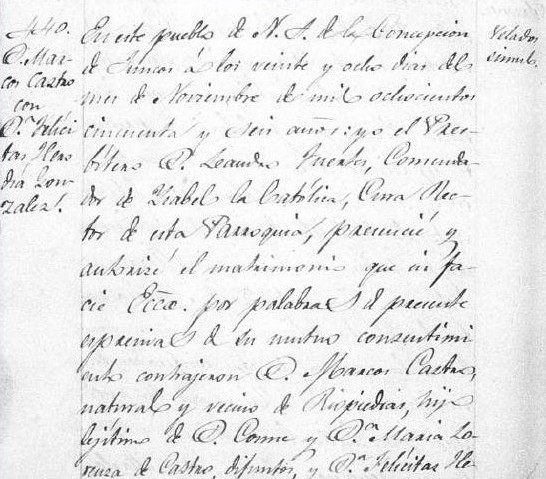 440.
D. Mar-
cos Castro
con
D.ª Felici
tas Here
dia Gon-
zalez.
En este pueblo de N. S. de la Concepcion
de Juncos á los veinte y ocho dias del
mes de Noviembre de mil ochocientos
cincuenta y seis años: yo el Pres-
bitero D. Leandro Fuentes, Comenda-
dor de Ysabel la Católica, Cura Rec-
tor de esta Parroquia, presencié y
autorizé el matrimonio que in fa-
cie Ecce. por palabras d presente
espresivas d su mutuo consentimi
ento contrajeron D. Marcos Castro,
natural y vecino de Riopiedras, hijo
lejítimo de D. Cosme y D.ª Maria Lo-
renza de Castro, difuntos, y D.ª Felícitas He-
Velados
simul.